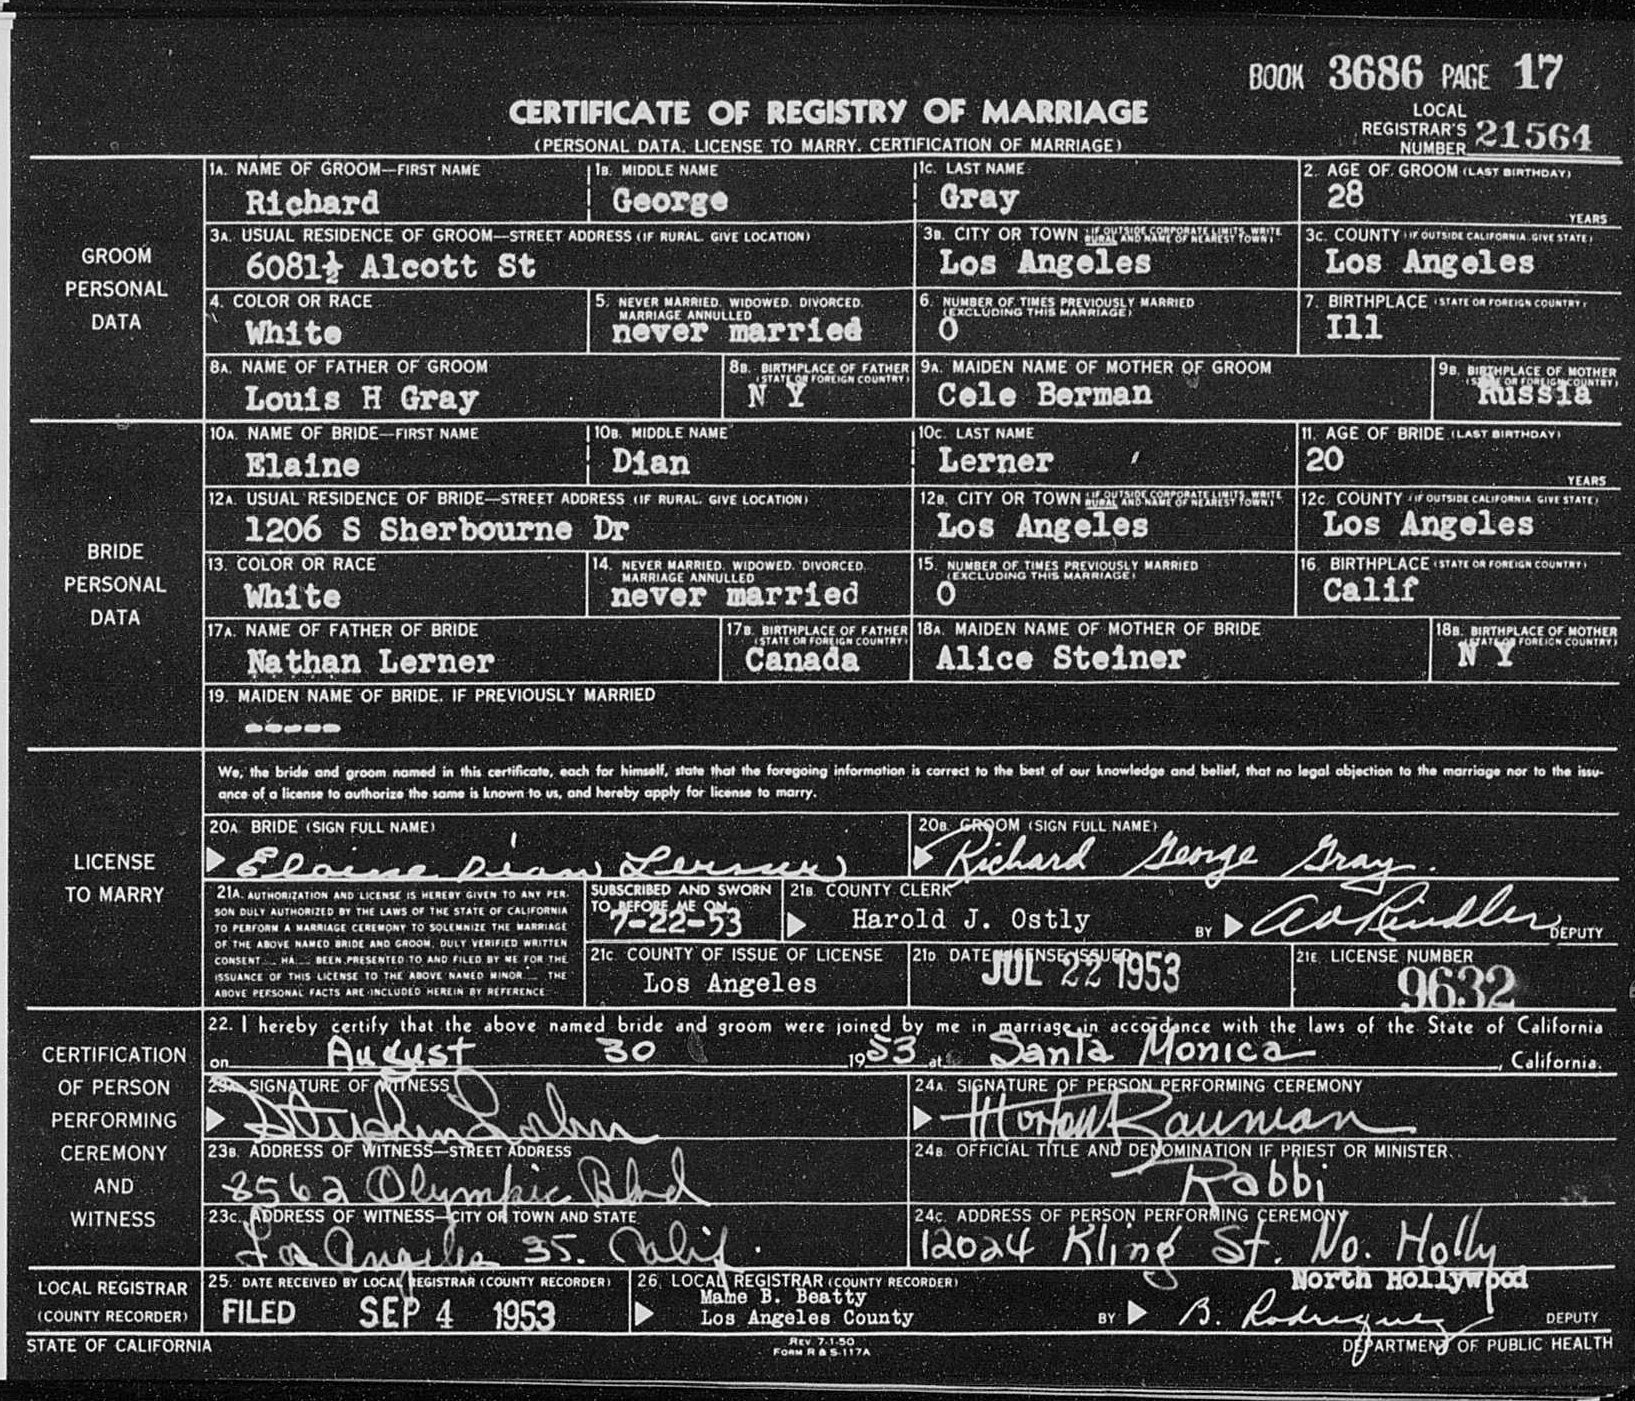 BOOK 3686 PAGE 17
CERTIFICATE OF REGISTRY OF MARRIAGE
(PERSONAL DATA, LICENSE TO MARRY, CERTIFICATION OF MARRIAGE)
LOCAL REGISTRAR'S NUMBER 21564
GROOM PERSONAL DATA
1A. NAME OF GROOM—FIRST NAME 1B. MIDDLE NAME 1C. LAST NAME 2. AGE OF GROOM (LAST BIRTHDAY)
Richard George Gray 28 YEARS
3A. USUAL RESIDENCE OF GROOM—STREET ADDRESS (IF RURAL, GIVE LOCATION) 3B. CITY OR TOWN (IF OUTSIDE CORPORATE LIMITS, WRITE RURAL AND NAME OF NEAREST TOWN) 3C. COUNTY (IF OUTSIDE CALIFORNIA, GIVE STATE)
6081½ Alcott St Los Angeles Los Angeles
4. COLOR OR RACE 5. NEVER MARRIED, WIDOWED, DIVORCED, MARRIAGE ANNULLED 6. NUMBER OF TIMES PREVIOUSLY MARRIED (EXCLUDING THIS MARRIAGE) 7. BIRTHPLACE (STATE OR FOREIGN COUNTRY)
White never married 0 Ill
8A. NAME OF FATHER OF GROOM 8B. BIRTHPLACE OF FATHER (STATE OR FOREIGN COUNTRY) 9A. MAIDEN NAME OF MOTHER OF GROOM 9B. BIRTHPLACE OF MOTHER (STATE OR FOREIGN COUNTRY)
Louis H Gray N Y Cele Berman Russia
BRIDE PERSONAL DATA
10A. NAME OF BRIDE—FIRST NAME 10B. MIDDLE NAME 10C. LAST NAME 11. AGE OF BRIDE (LAST BIRTHDAY)
Elaine Dian Lerner 20 YEARS
12A. USUAL RESIDENCE OF BRIDE—STREET ADDRESS (IF RURAL, GIVE LOCATION) 12B. CITY OR TOWN (IF OUTSIDE CORPORATE LIMITS, WRITE RURAL AND NAME OF NEAREST TOWN) 12C. COUNTY (IF OUTSIDE CALIFORNIA, GIVE STATE)
1206 S Sherbourne Dr Los Angeles Los Angeles
13. COLOR OR RACE 14. NEVER MARRIED, WIDOWED, DIVORCED, MARRIAGE ANNULLED 15. NUMBER OF TIMES PREVIOUSLY MARRIED (EXCLUDING THIS MARRIAGE) 16. BIRTHPLACE (STATE OR FOREIGN COUNTRY)
White never married 0 Calif
17A. NAME OF FATHER OF BRIDE 17B. BIRTHPLACE OF FATHER (STATE OR FOREIGN COUNTRY) 18A. MAIDEN NAME OF MOTHER OF BRIDE 18B. BIRTHPLACE OF MOTHER (STATE OR FOREIGN COUNTRY)
Nathan Lerner Canada Alice Steiner N Y
19. MAIDEN NAME OF BRIDE, IF PREVIOUSLY MARRIED
-----
LICENSE TO MARRY
We, the bride and groom named in this certificate, each for himself, state that the foregoing information is correct to the best of our knowledge and belief, that no legal objection to the marriage nor to the issu-
ance of a license to authorize the same is known to us, and hereby apply for license to marry.
20A. BRIDE (SIGN FULL NAME) 20B. GROOM (SIGN FULL NAME)
Elaine Dian Lerner Richard George Gray.
21A. AUTHORIZATION AND LICENSE IS HEREBY GIVEN TO ANY PER-
SON DULY AUTHORIZED BY THE LAWS OF THE STATE OF CALIFORNIA
TO PERFORM A MARRIAGE CEREMONY TO SOLEMNIZE THE MARRIAGE
OF THE ABOVE NAMED BRIDE AND GROOM. DULY VERIFIED WRITTEN
CONSENT__ HA__ BEEN PRESENTED TO AND FILED BY ME FOR THE
ISSUANCE OF THIS LICENSE TO THE ABOVE NAMED MINOR__ THE
ABOVE PERSONAL FACTS ARE INCLUDED HEREIN BY REFERENCE
SUBSCRIBED AND SWORN TO BEFORE ME ON 7-22-53
21B. COUNTY CLERK
Harold J. Ostly BY DEPUTY
21C. COUNTY OF ISSUE OF LICENSE 21D DATE LICENSE ISSUED 21E. LICENSE NUMBER
Los Angeles JUL 22 1953 9632
CERTIFICATION OF PERSON PERFORMING CEREMONY AND WITNESS
22. I hereby certify that the above named bride and groom were joined by me in marriage in accordance with the laws of the State of California
on August 30 1953 at Santa Monica, California.
23A. SIGNATURE OF WITNESS 24A. SIGNATURE OF PERSON PERFORMING CEREMONY
Morton Bauman
23B. ADDRESS OF WITNESS—STREET ADDRESS 24B OFFICIAL TITLE AND DENOMINATION IF PRIEST OR MINISTER
8562 Olympic Blvd Rabbi
23C. ADDRESS OF WITNESS—CITY OR TOWN AND STATE 24C. ADDRESS OF PERSON PERFORMING CEREMONY
Los Angeles 35. Calif. 12024 Kling St. No. Holly
North Hollywood
LOCAL REGISTRAR (COUNTY RECORDER)
25. DATE RECEIVED BY LOCAL REGISTRAR (COUNTY RECORDER) 26. LOCAL REGISTRAR (COUNTY RECORDER)
FILED SEP 4 1953
Mame B. Beatty
Los Angeles County BY B. Rodriguez DEPUTY
STATE OF CALIFORNIA
REV 7-1-50
FORM R & S-117A
DEPARTMENT OF PUBLIC HEALTH